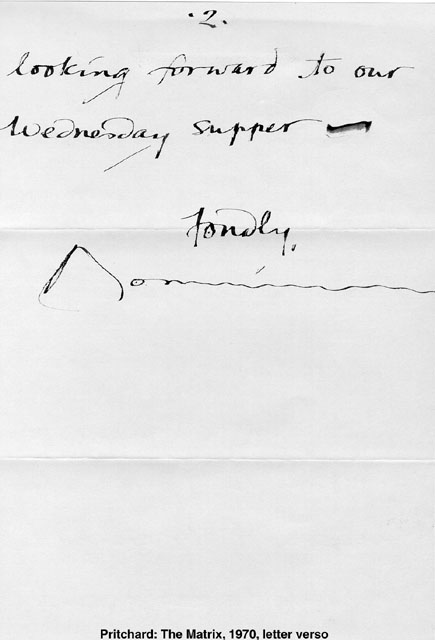 ·2.
looking forward to our
Wednesday supper —
Fondly,
Dominique
Pritchard: The Matrix, 1970, letter verso